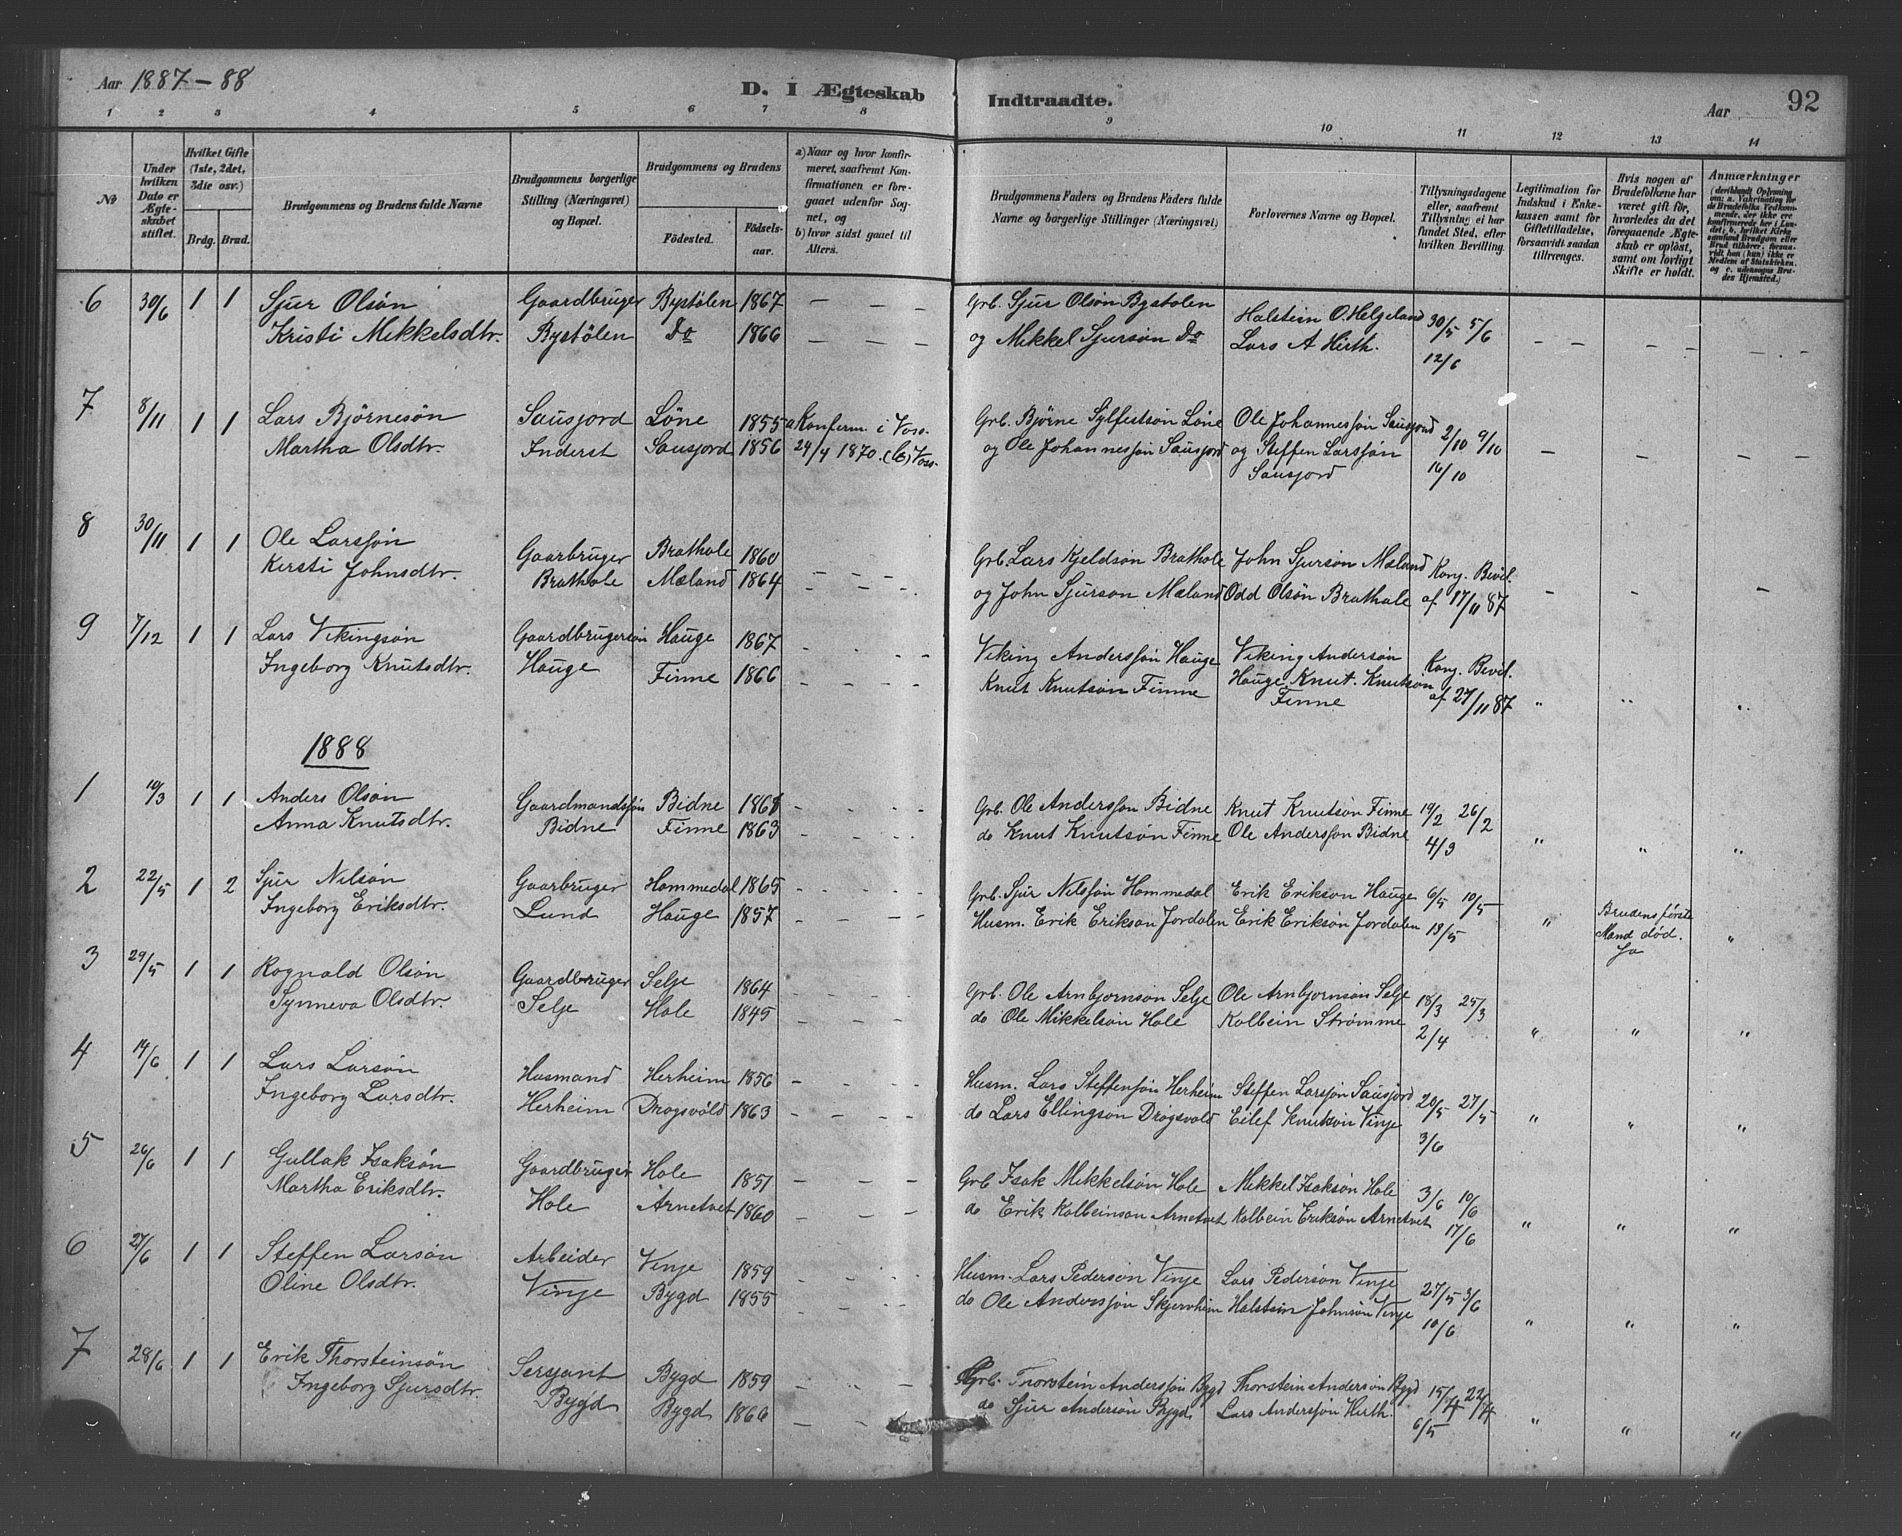 Aar 1887-88 D. I Ægteskab Indtraadte. Aar 92
1 2 3 4 5 6 7 8 9 10 11 12 13 14
No
Under hvilken Dato er Ægteskabet stiftet.
Hvilket Gifte (1ste, 2det, 3die osv.)
Brdg. Brud.
Brudgommens og Brudens fulde Navne
Brudgommens borgerlige Stilling (Næringsvei) og Bopæl.
Brudgommens og Brudens
Födested. Födsels-aar.
a) Naar og hvor konfirmeret, saafremt Konfirmationen er foregaaet udenfor Sognet, og
b) hvor sidst gaaet til Alters.
Brudgommens Faders og Brudens Faders fulde Navne og borgerlige Stillinger (Næringsvei)
Forlovernes Navne og Bopæl.
Tillysningsdagene eller, saafremt Tillysning ei har fundet Sted, efter hvilken Bevilling.
Legitimation for Indskud i Enkekassen samt for Giftetilladelse, forsaavidt saadan tiltrænges.
Hvis nogen af Brudefolkene har været gift för, hvorledes da det foregaaende Ægteskab er oplöst, samt om lovligt Skifte er holdt.
Anmærkninger
6 30/6 1 1 Sjur Olsön Gaardbruger Bystölen 1867 – – – Grb. Sjur Olsön Bystolen Halstein O. Helgeland 30/5 5/6
Kristi Mikkelsdtr. Bystölen Do 1866 – – – og Mikkel Sjursön Do Lars A Hirth. 12/6 – – – – – –
7 8/11 1 1 Lars Björnesön Sausjord Löne 1855 a Konferm. i Voss. Grb. Björne Sylfestsön Löne Ole Johannesson Sausjord 2/10 9/10
Martha Olsdtr. Inderst Sausjord 1856 24/4 1870. (b) Voss. og Ole Johannesson Sausjord og Steffen Larssön – – – –
Sausjord 16/10
8 30/11 1 1 Ole Larssön Gaarbruger Brathole 1860 Grb. Lars Kjeldsön Brathole John Sjursön Mæland Kong. Bevil.
Kersti Johnsdtr. Brathole Mæland 1864 – – – og John Sjurson Mæland Odd Olsön Brathole af 17/11 87 – – –
9 7/12 1 1 Lars Vikingsön Gaardbrugersön Hauge 1867 – – – Viking Anderssön Hauge Viking Andersön Kong. Bevil.
Ingeborg Knutsdtr. Hauge Finne 1866 – – – – Knut Knutsön Finne Hauge Knut. Knutsön af 27/11 87 " " "
Finne
1888
1 10/3 1 1 Anders Olsön Gaardmandssön Bidne – – – Grb. Ole Andersson Bidne Knut Knutsön Finne 19/2 26/2
Anna Knutsdtr. Bidne Finne 1863 – – – do Knut Knutsön Finne Ole Andersson Bidne 4/3 " " "
2 22/5 1 2 Sjur Nilsön Gaarbruger Hommedal 1865 – – – – Grb. Sjur Nilssön Hommedal Erik Erikson Hauge 6/5 10/5
Ingeborg Eriksdtr. Lund Hauge 1857 – – – Husm. Erik Erikson Jordalen Erik Eriksön Jordalen 13/5 " Brudens förste Mand död. Ja "
3 29/5 1 1 Rognald Olsön Gaardbruger Selje 1864 Grb. Ole Arnbjornsön Selje Ole Arnbjornsön Selje 18/3 25/3
Synneva Olsdtr. Selje Hole 1845 – – – – do Ole Mikkelsön Hole Kolbein Strömme 2/4 " " "
4 14/6 1 1 Lars Larsön Husmand Herheim 1856 – – – Husm. Lars Steffensön Herheim Steffen Larsson Sausjord 20/5 27/5
Ingeborg Larsdtr. Herheim Drogsvöld 1863 – – – – do Lars Ellingson Drögsvold Eilef Knutsön Vinje 3/6 " " "
5 26/6 1 1 Gullak Isaksön Gaardbruger Hole 1851 – – – Grb Isak Mikkelsön Hole Mikkel Isaksön Hole 3/6 10/6
Martha Eriksdtr. Hole Arnetvet 1860 – – – do Erik Kolbeinson Arnetvet Kolbein Eriksön Arnetvet 17/6 " " "
6 27/6 1 1 Steffen Larsön Arbeider Vinje 1859 – – – Husm. Lars Pedersön Vinje Lars Pedersön Vinje 27/5 3/6
Oline Olsdtr. Vinje Bygd 1855 – – – – do Ole Anderssön Skjervheim Halstein Johnsön Vinje 10/6 " " "
7 28/6 1 1 Erik Thorsteinsön Sersjant Bygd 1859 – – – Grb. Thorstein Anderssön Bygd Thorstein Andersön Bygd 15/4 22/4
Ingeborg Sjursdtr. Bygd Bygd 1866 – – do Sjur Andersön Bygd Lars Anderssön Hirth. 6/5 " " "